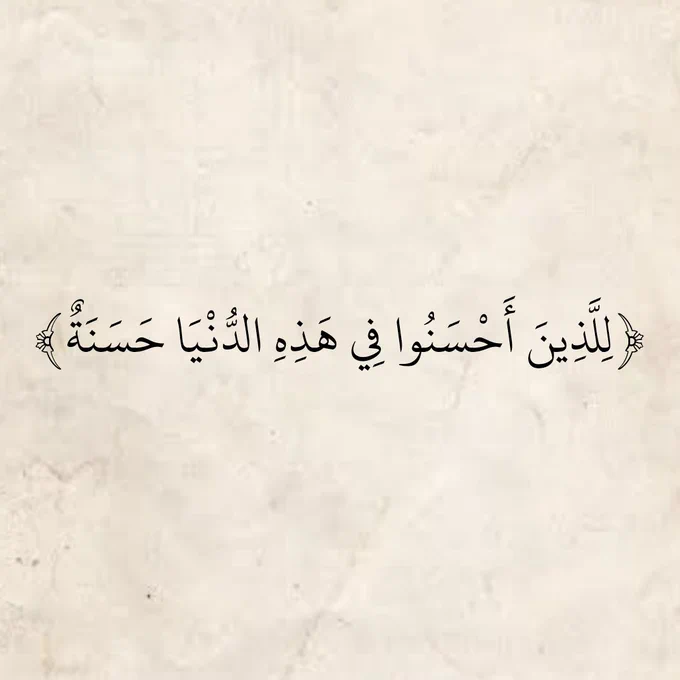 ﴿لِلَّذِينَ أَحْسَنُوا فِي هَذِهِ الدُّنْيَا حَسَنَةٌ﴾